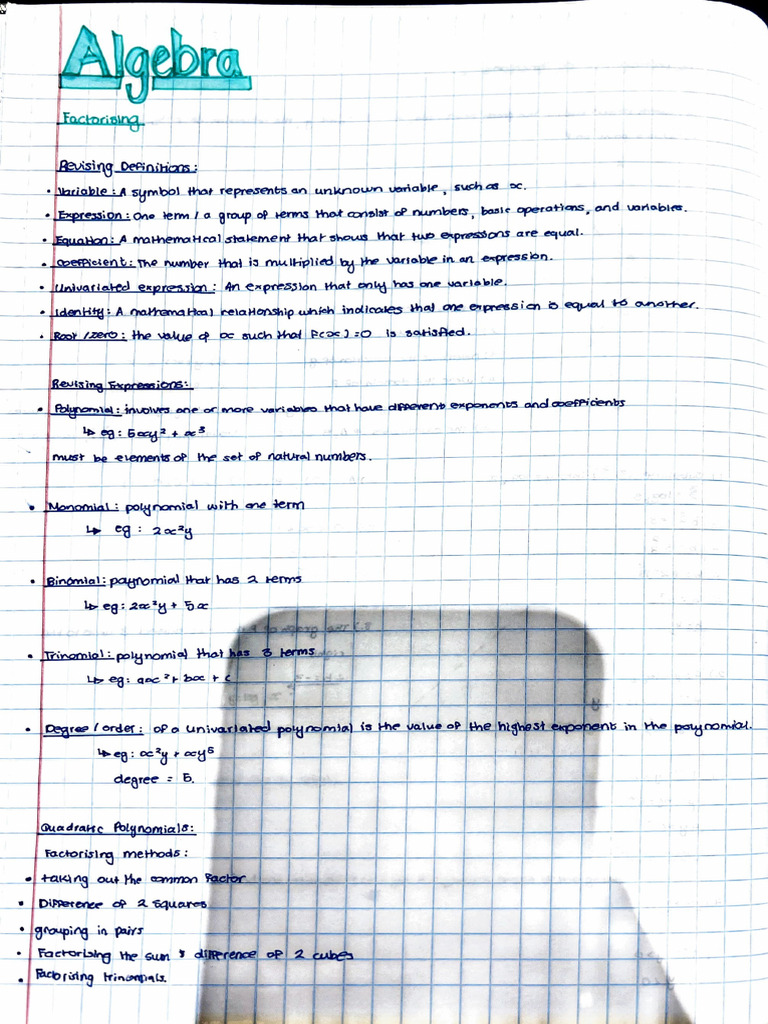 Algebra
Factorising
Revising Definitions:
• Variable: A symbol that represents an unknown variable, such as x.
• Expression: One term / a group of terms that consist of numbers, basic operations, and variables.
• Equation: A mathematical statement that shows that two expressions are equal.
• Coefficient: The number that is multiplied by the variable in an expression.
• Univariated expression: An expression that only has one variable.
• Identity: A mathematical relationship which indicates that one expression is equal to another.
• Root / zero: the value of x such that P(x) = 0 is satisfied.
Revising Expressions:
• Polynomial: involves one or more variables that have different exponents and coefficients
↳ eg: 5xy² + x³
must be elements of the set of natural numbers.
• Monomial: polynomial with one term
↳ eg: 2x²y
• Binomial: polynomial that has 2 terms
↳ eg: 2x²y + 5x
• Trinomial: polynomial that has 3 terms
↳ eg: ax² + bx + c
• Degree / order: of a univariated polynomial is the value of the highest exponent in the polynomial.
↳ eg: x²y + xy⁵
degree = 5.
Quadratic Polynomials:
Factorising methods:
• taking out the common factor
• Difference of 2 squares
• grouping in pairs
• Factorising the sum & difference of 2 cubes
• Factorising trinomials.